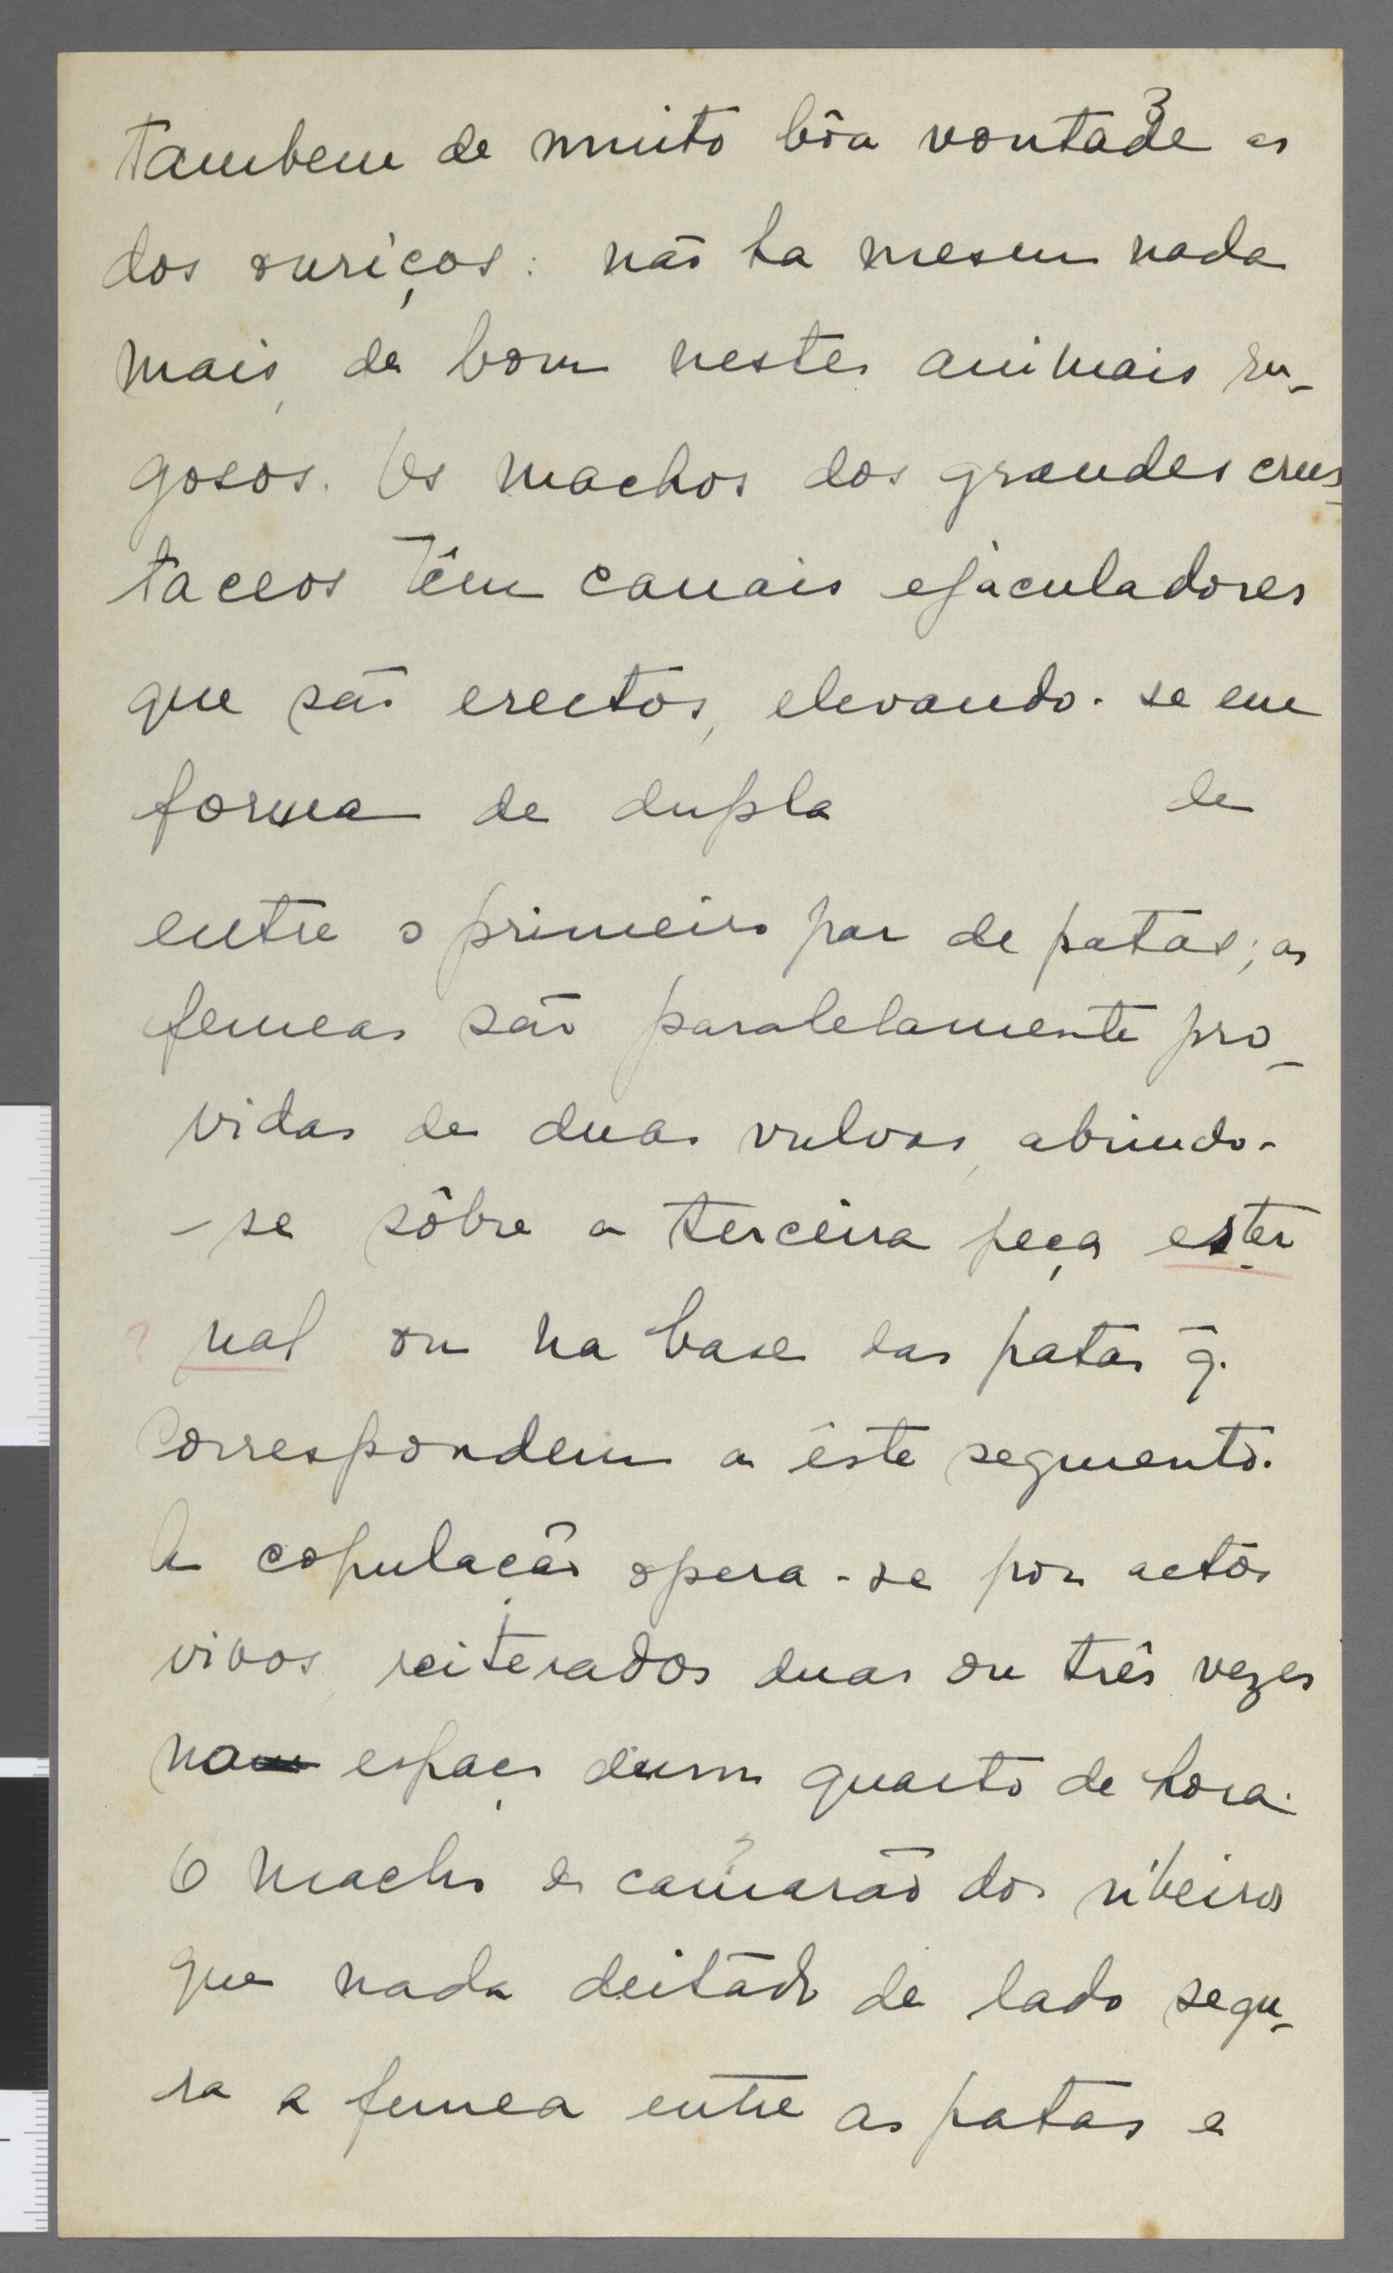 3
tambem de muito bôa vontade os
dos ouriços: não ha mesm nada
mais, de bom nestes animais ru-
gosos. Os machos dos grandes crus-
taceos têm canais ejaculadores
que são erectos, elevando-se em
forma de dupla de
entre o primeiro par de patas; as
femeas são paralelamente pro-
vidas de duas vulvas, abrindo-
-se sôbre a terceira peça ester
? nal ou na base das patas q̃.
correspondem a êste segmento.
A copulação opera-se por actos
vivos, reiterados duas ou três vezes
no espaço dum quarto de hora.
O macho do camarão dos ribeiros
que nada deitado de lado segu-
ra a femea entre as patas e